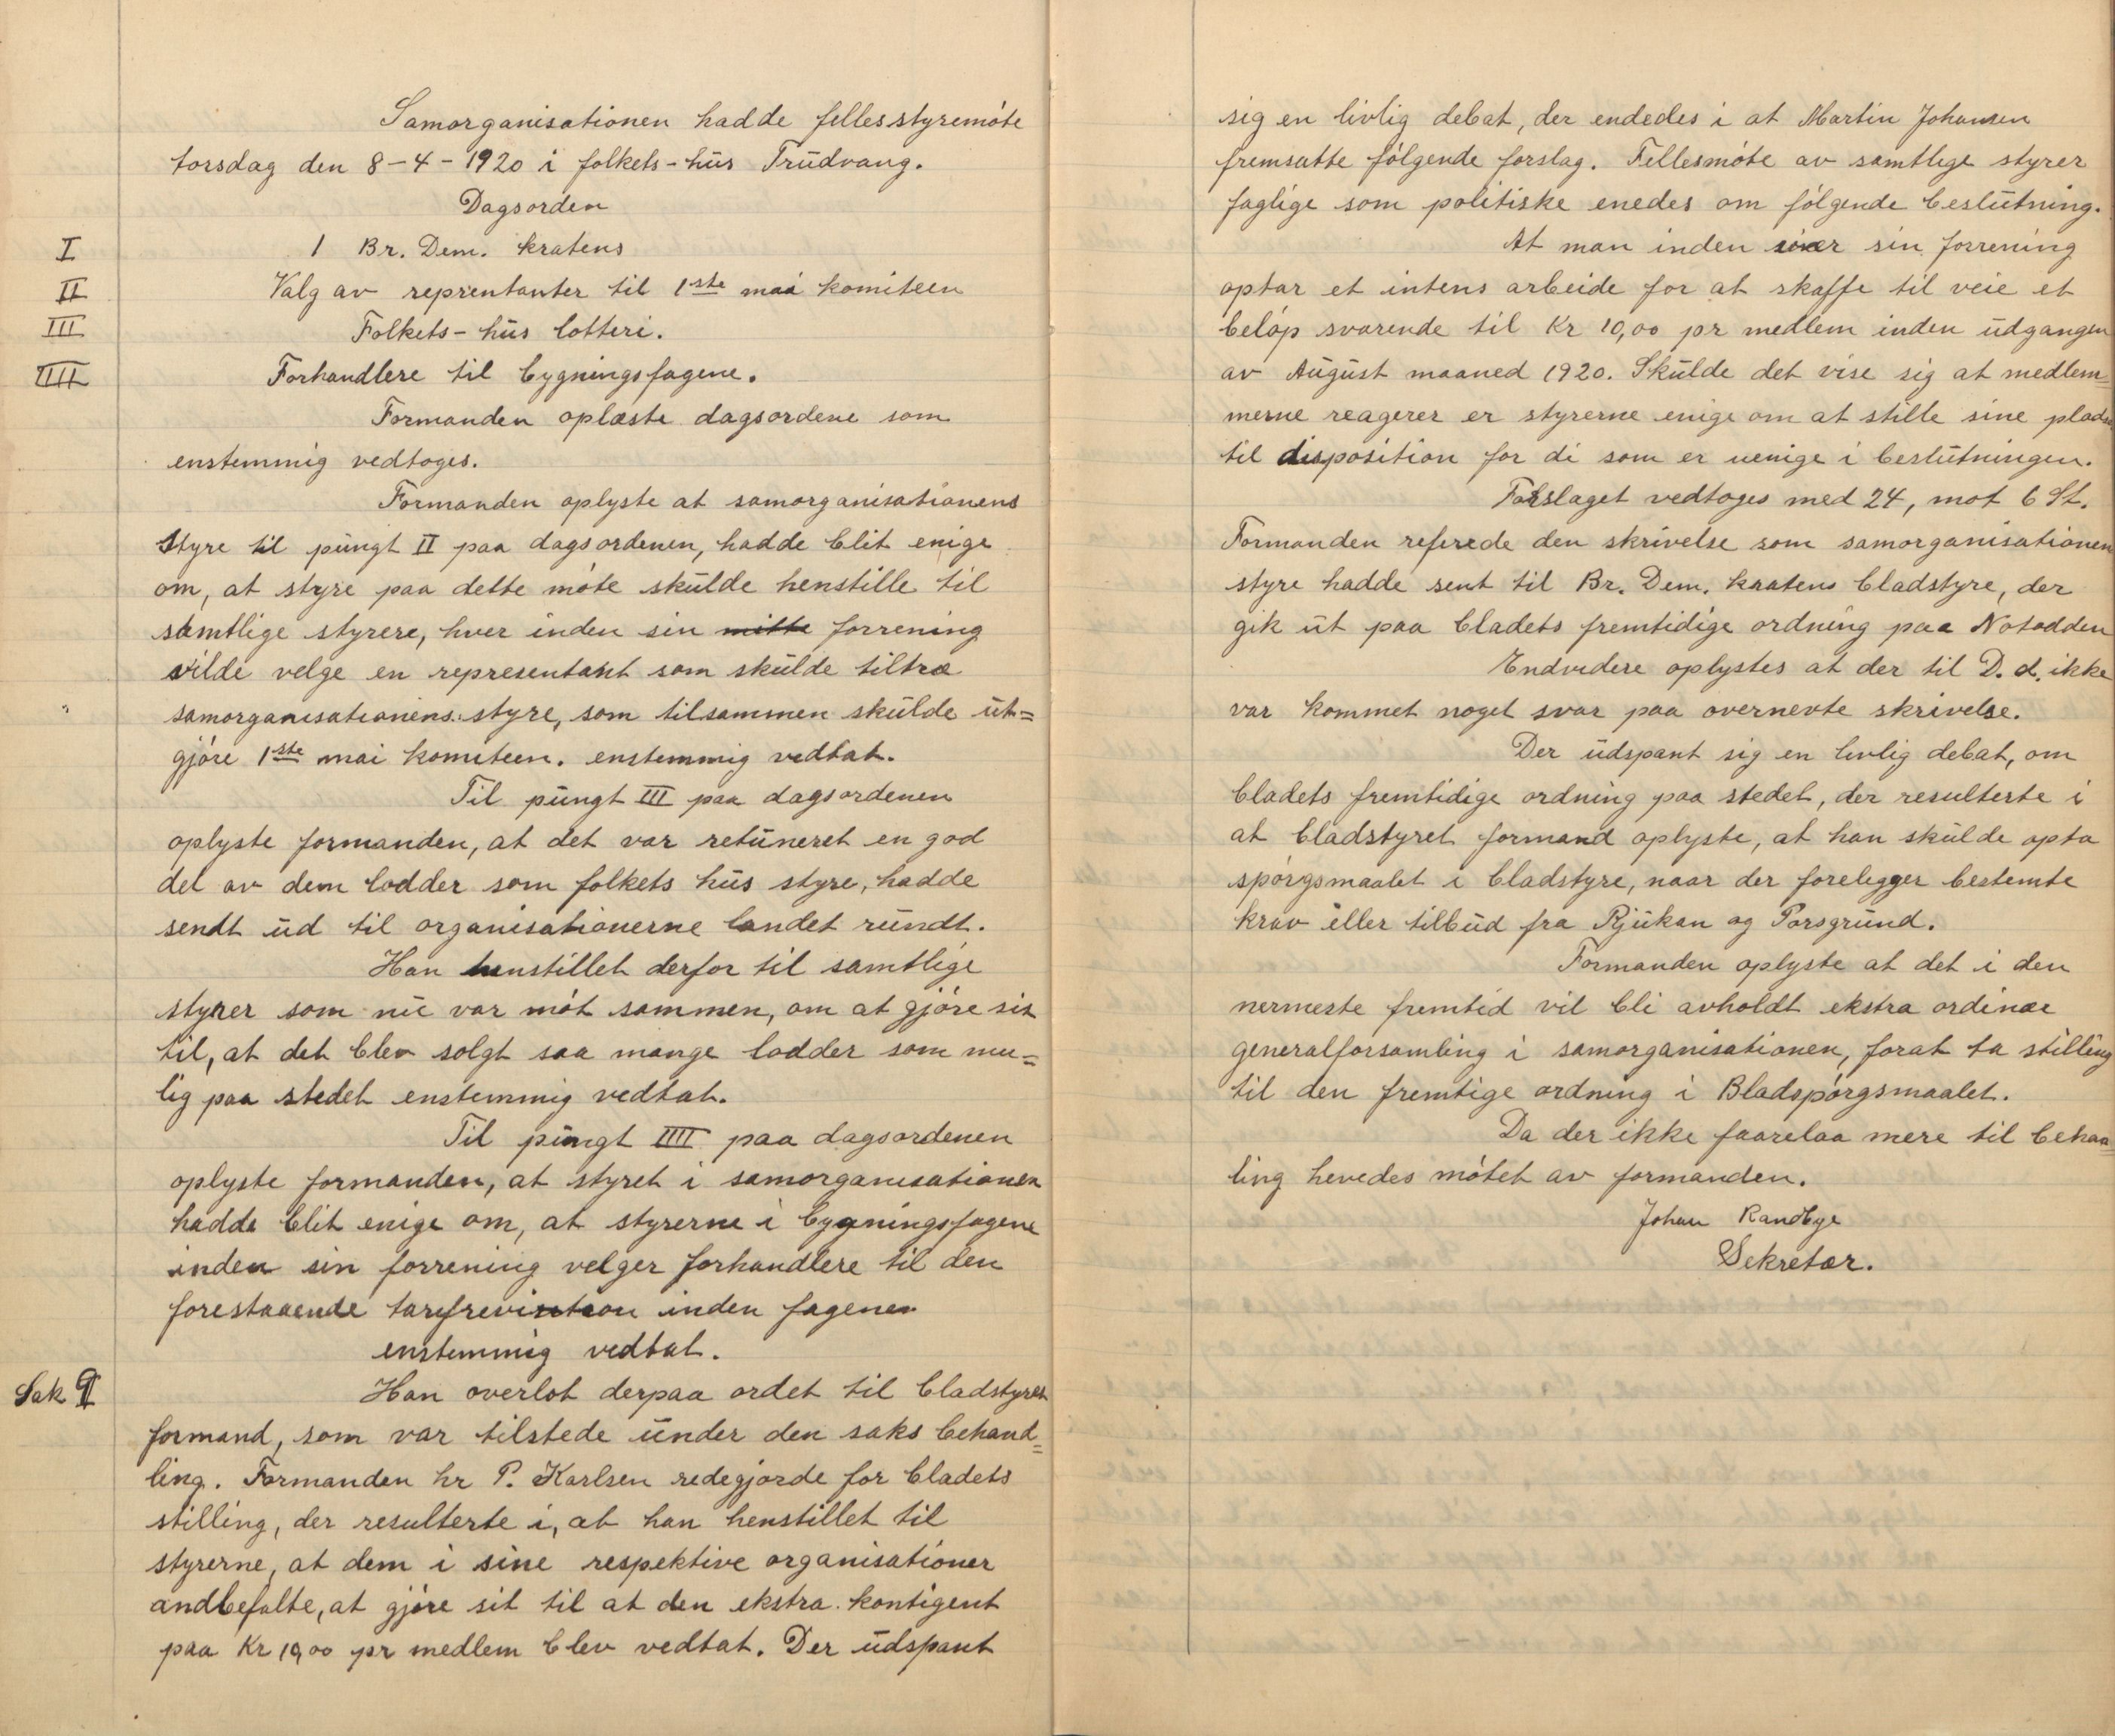 Samorganisationen hadde fellesstyremöte
torsdag den 8-4-1920 i folkets-hus Trudvang.
Dagsorden
I 1 Br. Dem. kratens
II Valg av reprentanter til 1ste mai komiteen
III Folkets-hus lotteri.
IIII Forhandlere til bygningsfagene.
Formanden oplæste dagsordene som
enstemmig vedtoges.
Formanden oplyste at samorganisationens
styre til pungt II paa dagsordenen, hadde blit enige
om, at styre paa dette möte skulde henstille til
samtlige styrere, hver inden sin mitte forrening
vilde velge en representant som skulde tiltræ
samorganisationens styre, som tilsammen skulde ut=
gjöre 1ste mai komiteen. enstemmig vedtat.
Til pungt III paa dagsordenen
oplyste formanden, at det var retuneret en god
del av dem lodder som folkets hus styre, hadde
sendt ud til organisationerne landet rundt.
Han henstillet derfor til samtlige
styrer som nu var möt sammen, om at gjöre sit
til, at det blev solgt saa mange lodder som mu=
lig paa stedet enstemmig vedtat.
Til pungt IIII paa dagsordenen
oplyste formanden, at styret i samorganisationen
hadde blit enige om, at styrerne i bygningsfagene
inden sin forrening velger forhandlere til den
forestaaende tarifrevision inden fagenen
enstemmig vedtat.
Sak I Han overlot derpaa ordet til bladstyret
formand, som var tilstede under den saks behand=
ling. Formanden hr P. Karlsen redegjorde for bladets
stilling, der resulterte i, at han henstillet til
styrerne, at dem i sine respektive organisationer
andbefalte, at gjöre sit til at den ekstra kontigent
paa Kr 10,00 pr medlem blev vedtat. Der udspant
sig en livlig debat, der endedes i at Martin Johansen
fremsatte fölgende forslag. Fellesmöte av samtlige styrer
faglige som politiske enedes om fölgende beslutning.
At man inden siver sin forrening
optar et intens arbeide for at skaffe til veie et
belöp svarende til Kr 10,00 pr medlem inden udgangen
av August maaned 1920. Skulde det vise sig at medlem=
merne reagerer er styrerne enige om at stille sine pladser
til disposition for di som er uenige i beslutningen.
Forslaget vedtoges med 24, mot 6 St.
Formanden referede den skrivelse som samorganisationen
styre hadde sent til Br. Dem. kratens bladstyre, der
gik ut paa bladets fremtidige ordning paa Notodden
Endvidere oplystes at der til D. d. ikke
var kommet noget svar paa overnevte skrivelse.
Der udspant sig en livlig debat, om
bladets fremtidige ordning paa stedet, der resulterte i
at bladstyret formand oplyste, at han skulde opta
spörgsmaalet i bladstyre, naar der foreligger bestemte
krav eller tilbud fra Rjukan og Porsgrund.
Formanden oplyste at det i den
nermeste fremtid vil bli avholdt ekstra ordinæe
generalforsamling i samorganisationen, forat ta stilling
til den fremtige ordning i Bladspörgsmaalet.
Da der ikke faarelaa mere til behan=
ling hevedes mötet av formanden.
Johan Randbye
Sekretær.